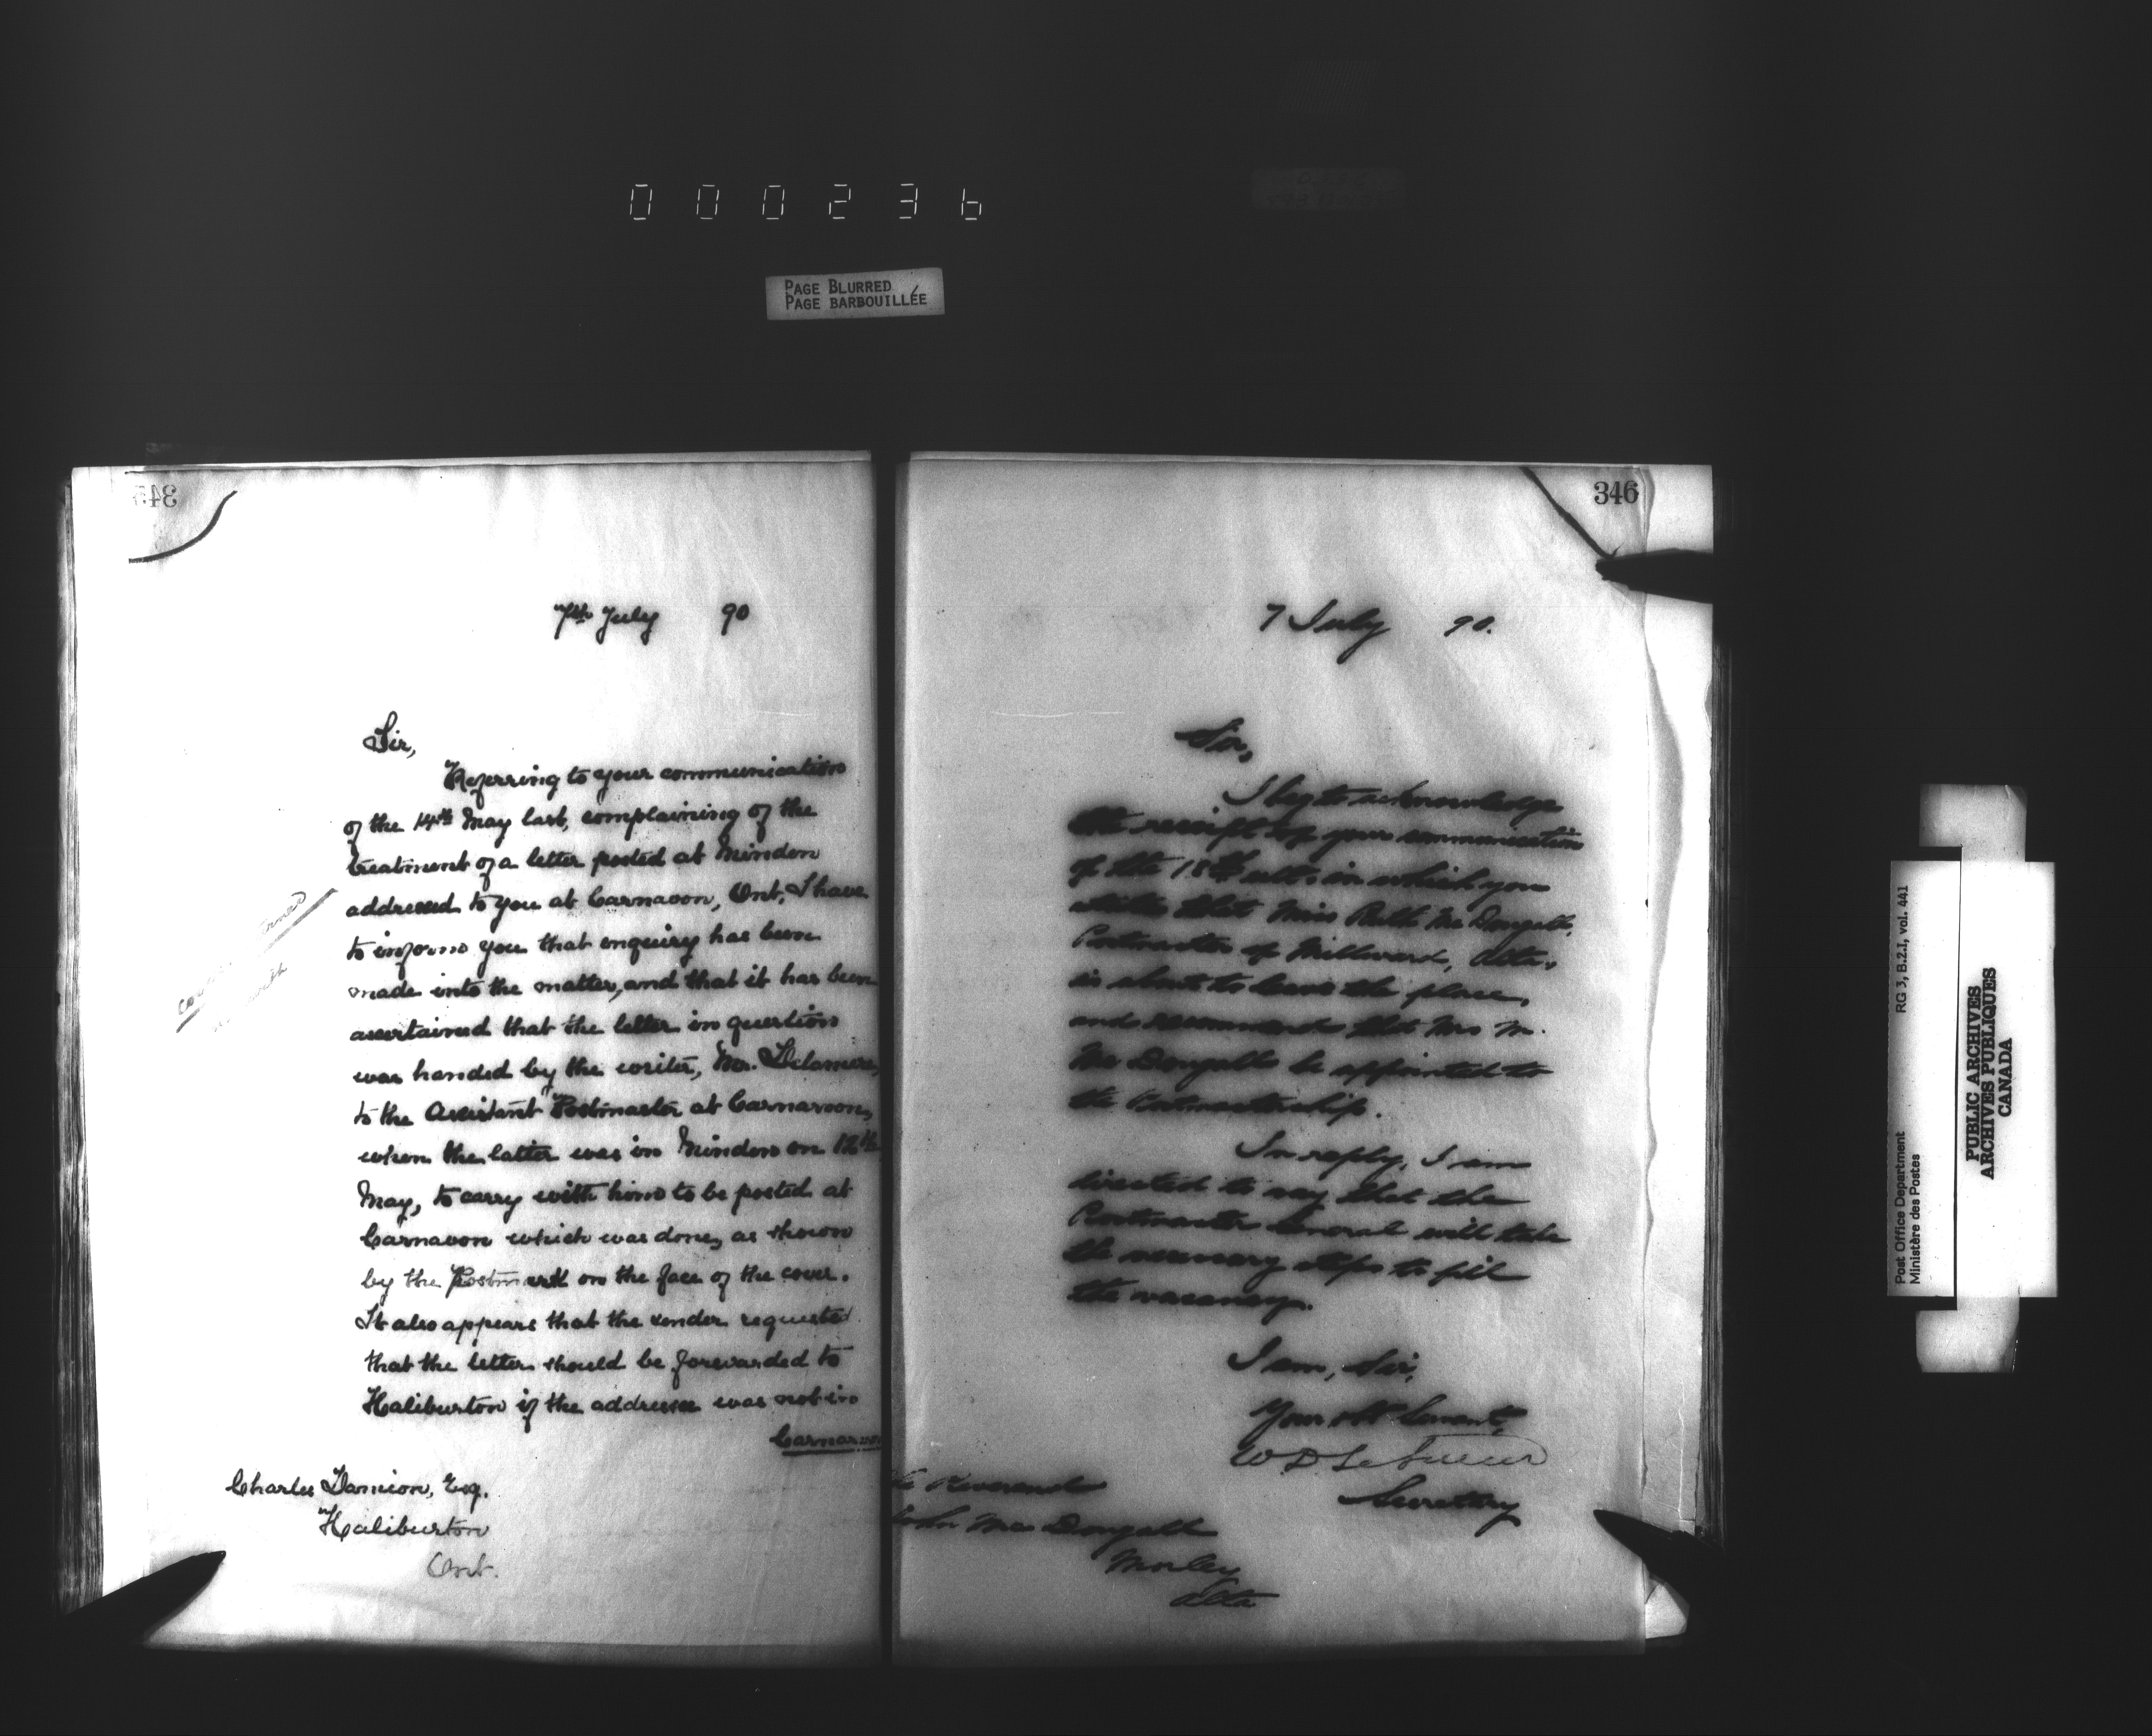 000236
PAGE BLURRED
PAGE BARBOUILLÉE
345
7th July 90
Sir,
Referring to your communication
of the 14th May last, complaining of the
treatment of a letter posted at Minden
addressed to you at Carnavon, Ont, I have
to inform you that enquiry has been
made into the matter, and that it has been
ascertained that the letter in question
was handed by the writer, Mr. Delamere,
to the Assistant Postmaster at Carnarvon,
when the latter was in Minden on 12th
May, to carry with him to be posted at
Carnavon which was done, as shown
by the Postmark on the face of the cover.
It also appears that the sender requested
that the letter should be forwarded to
Haliburton if the addressee was not in
Carnarvon
Charles Esq.
Haliburton
Ont.
346
7 July 90.
Sir,
I beg to acknowledge
the receipt of your communication
of the 18th ulto in which you
state that Miss Ruth McDougall,
Postmaster of Millward, Alta,
is about to leave the place,
and recommends that Mrs M.
McDougall be appointed to
the Postmastership.
In reply, I am
directed to say that the
Postmaster General will take
the necessary steps to fill
the vacancy.
I am, Sir,
Your obt Servant,
W D LeSueur
Secretary
The Reverend
John McDougall
Morley
Alta
Post Office Department RG 3, B.2.I, vol. 441
Ministère des Postes
PUBLIC ARCHIVES
ARCHIVES PUBLIQUES
CANADA